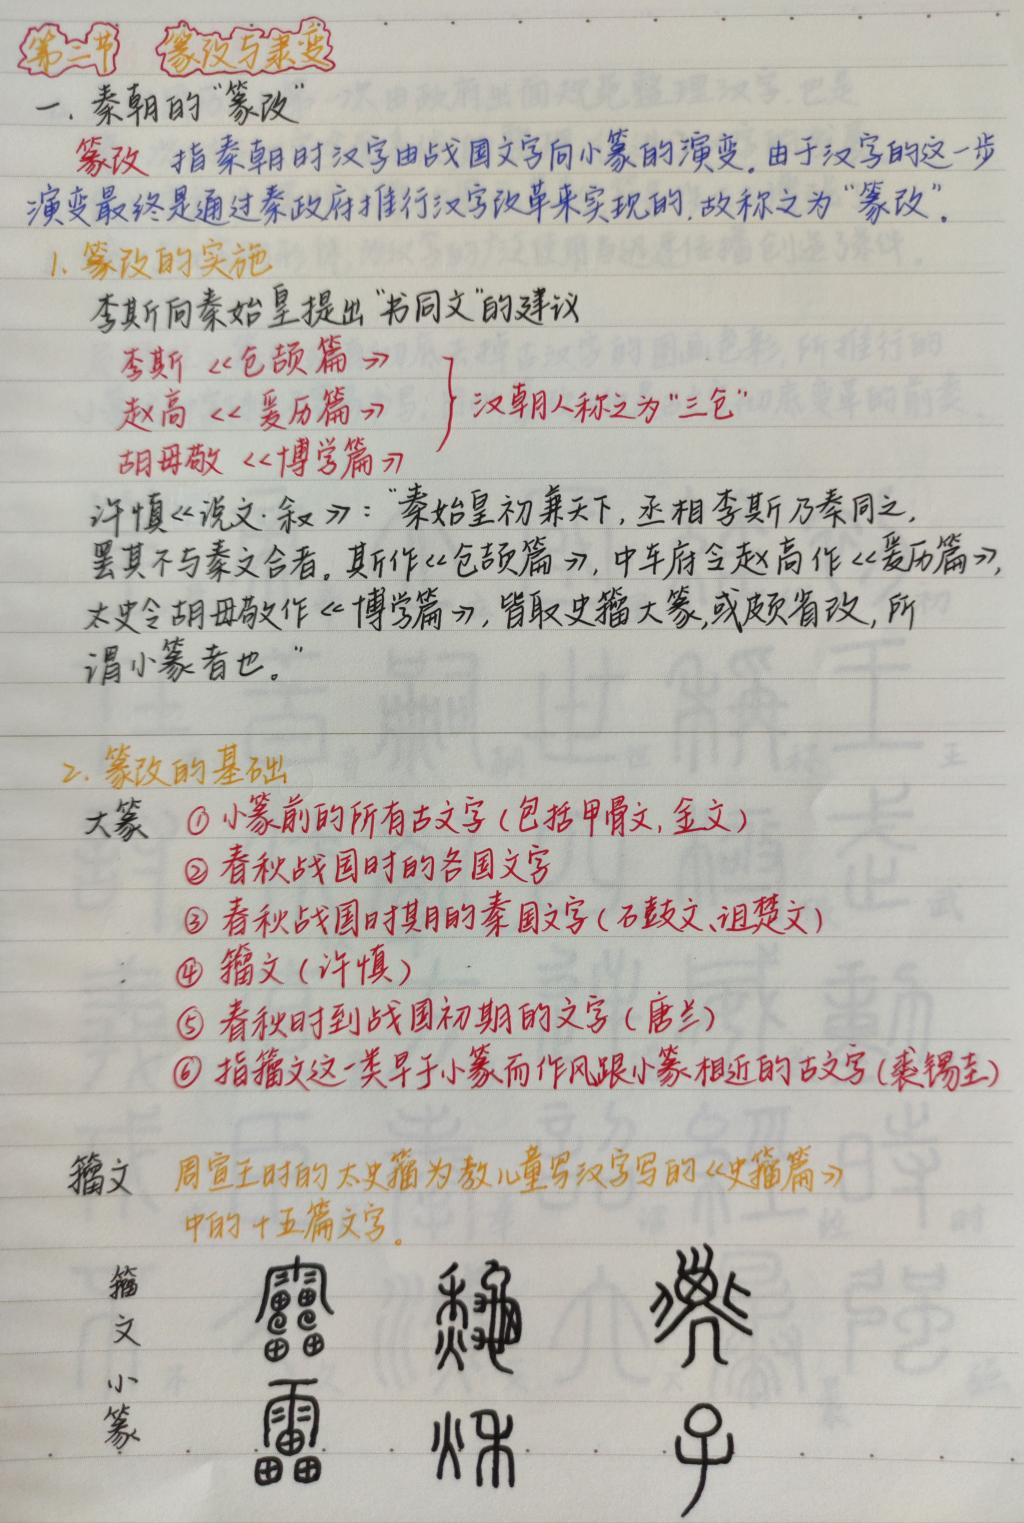 第二节 篆改与隶变
一. 秦朝的“篆改”
篆改 指秦朝时汉字由战国文字向小篆的演变. 由于汉字的这一步
演变最终是通过秦政府推行汉字改革来实现的, 故称之为“篆改”.
1. 篆改的实施
李斯向秦始皇提出“书同文”的建议
李斯《仓颉篇》
赵高《爰历篇》 汉朝人称之为“三仓”
胡毋敬《博学篇》
许慎《说文·叙》: “秦始皇初兼天下, 丞相李斯乃奏同之,
罢其不与秦文合者。斯作《仓颉篇》, 中车府令赵高作《爰历篇》,
太史令胡毋敬作《博学篇》, 皆取史籀大篆, 或颇省改, 所
谓小篆者也。”
2. 篆改的基础
大篆 ① 小篆前的所有古文字(包括甲骨文, 金文)
② 春秋战国时的各国文字
③ 春秋战国时期的秦国文字(石鼓文、诅楚文)
④ 籀文(许慎)
⑤ 春秋时到战国初期的文字(唐兰)
⑥ 指籀文这一类早于小篆而作风跟小篆相近的古文字(裘锡圭)
籀文 周宣王时的太史籀为教儿童写汉字写的《史籀篇》
中的十五篇文字。
籀文
小篆 雷 秋 子